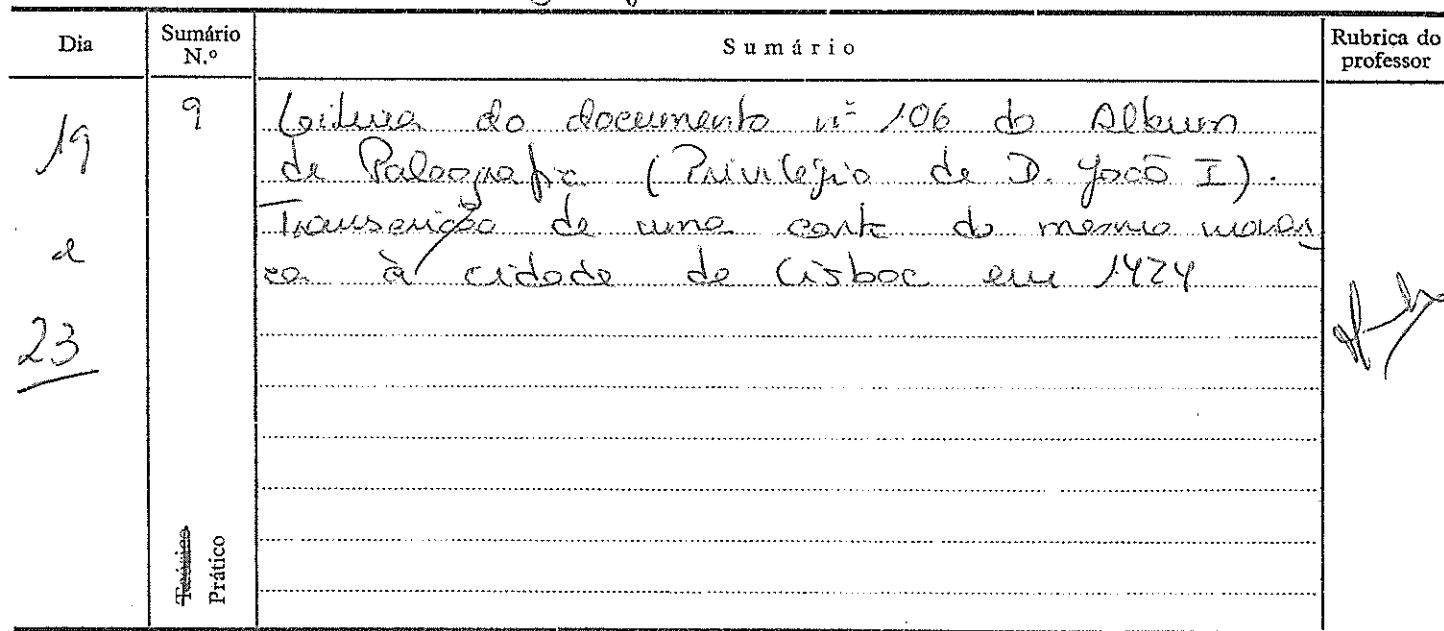 Dia
Sumário N.º
Sumário
Rubrica do professor
19
e
23
9
Leitura do documento nº 106 do Album
de Paleografia (Privilégio de D. João I).
Transcrição de uma carta do mesmo monar
ca à cidade de Lisboa em 1424
Teórico
Prático